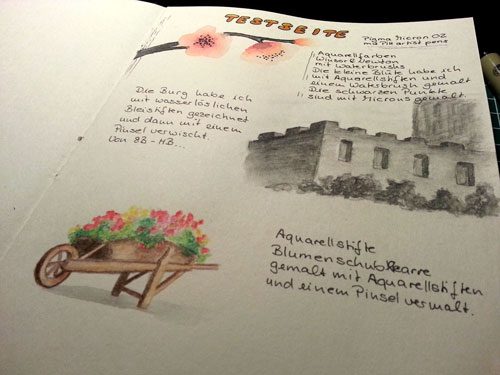 TESTSEITE
Pigma Micron 02
mit Pitt artist pens
Aquarellfarben
Winsor & Newton
mit Waterbrushs
Die kleine Blüte habe ich
mit Aquarellstiften und
einem Waterbrush gemalt
Die schwarzen Punkte
sind mit Microns gemalt.
Die Burg habe ich
mit wasserlöslichen
Bleistiften gezeichnet
und dann mit einem
Pinsel verwischt.
Von 8B-HB.
Aquarellstifte
Blumenschubkarre
gemalt mit Aquarellstiften
und einem Pinsel vermalt.